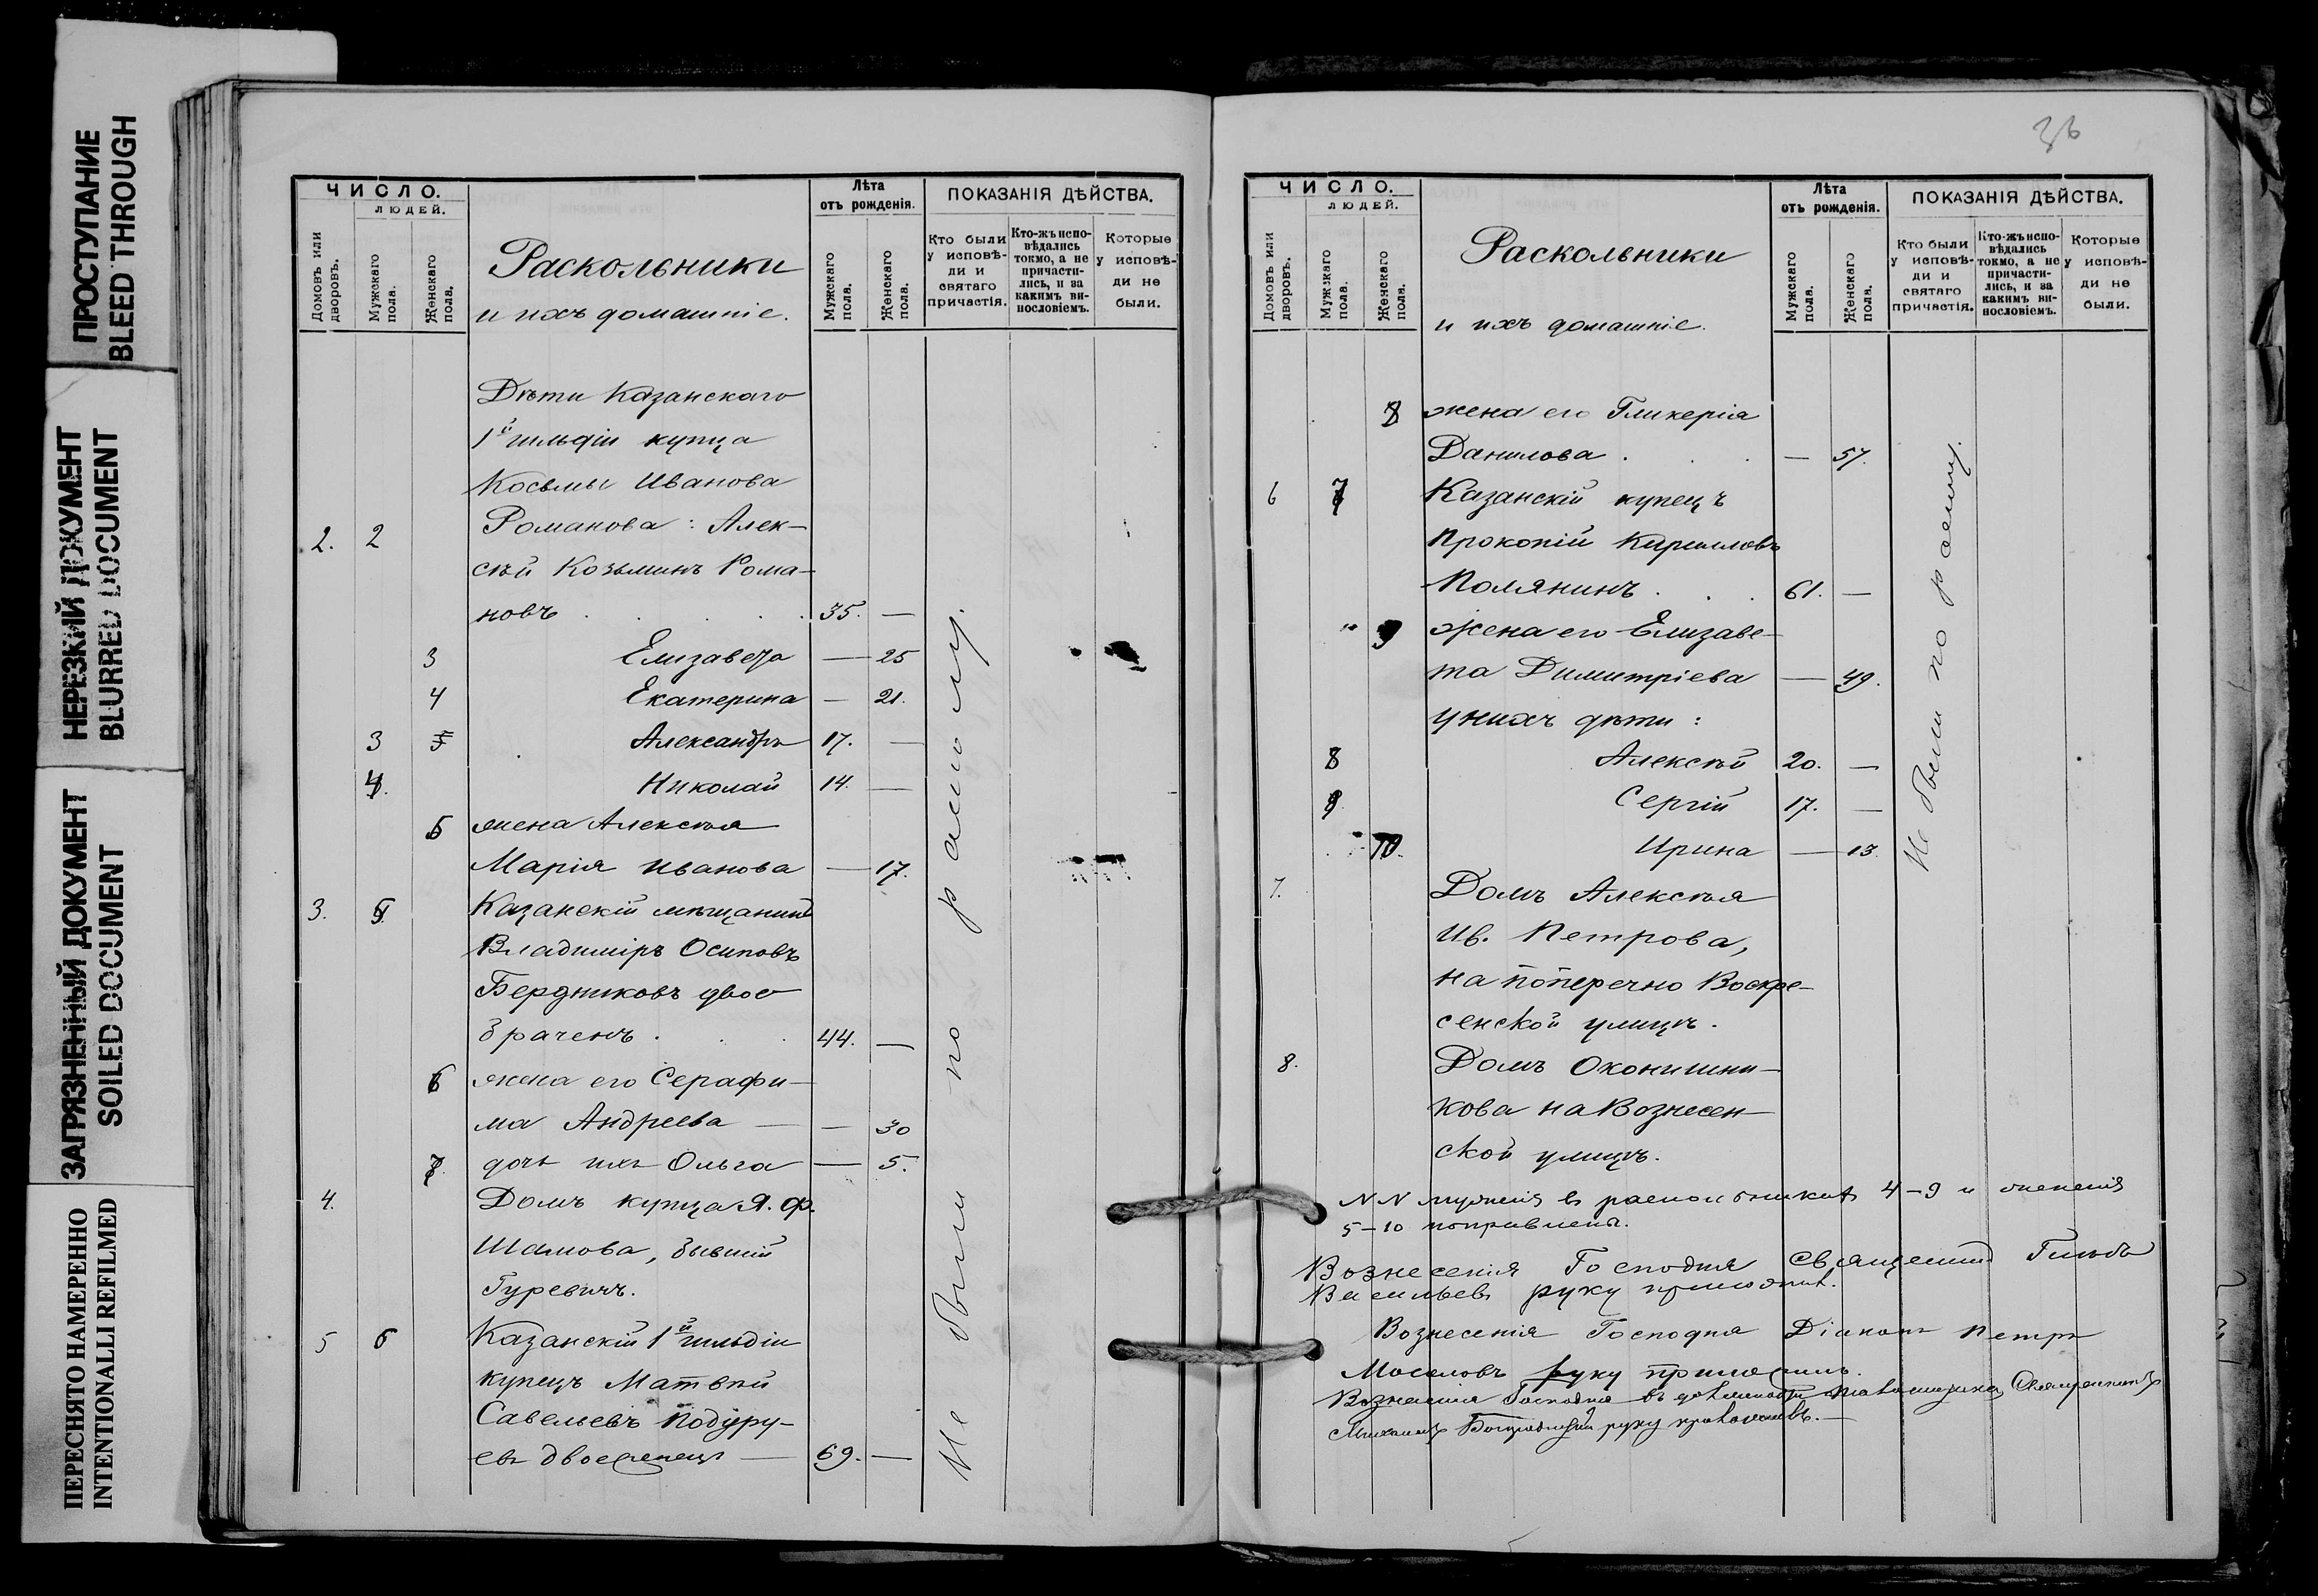 ПРОСТУПАНИЕ
BLEED THROUGH
НЕРЕЗКИЙ ДОКУМЕНТ
BLURRED DOCUMENT
ЗАГРЯЗНЕННЫЙ ДОКУМЕНТ
SOILED DOCUMENT
ПЕРЕСНЯТО НАМЕРЕННО
INTENTIONALLI REFILMED
ЧИСЛО.
ЛЮДЕЙ.
Домовъ или дворовъ.
Мужскаго пола.
Женскаго пола.
Раскольники
и ихъ домашніе.
Лѣта
отъ рожденія.
Мужскаго пола.
Женскаго пола.
ПОКАЗАНІЯ ДѢЙСТВА.
Кто были
у исповѣ-
ди и
святаго
причастія.
Кто-жъ испо-
вѣдались
токмо, а не
причасти-
лись, и за
какимъ ви-
нословіемъ.
Которые
у исповѣ-
ди не
были.
Дѣти Казанскаго
1й гильдіи купца
Косьмы Иванова
2. 2 Романова: Алек-
сѣй Козьминъ Рома-
новъ 35. —
3 Елизавета — 25
4 Екатерина — 21.
3 Александръ 17. —
4. Николай 14. —
5 жена Алексѣя
Марія Иванова — 17.
3. 5 Казанскій мѣщанинъ
Владиміръ Осиповъ
Бердниковъ двое
браченъ 44. —
6 жена его Серафи-
ма Андреева — — 30
7 дочь ихъ Ольга — 5.
4. Домъ купца Я. Ф.
Шамова, бывшій
Гуревичъ.
5 6 Казанскій 1й гильдіи
купецъ Матвѣй
Савельевъ Подуру-
евъ двоеженецъ — 69. —
Не были по расколу.
36
ЧИСЛО.
ЛЮДЕЙ.
Домовъ или дворовъ.
Мужскаго пола.
Женскаго пола.
Раскольники
и ихъ домашніе.
Лѣта
отъ рожденія.
Мужскаго пола.
Женскаго пола.
ПОКАЗАНІЯ ДѢЙСТВА.
Кто были
у исповѣ-
ди и
святаго
причастія.
Кто-жъ испо-
вѣдались
токмо, а не
причасти-
лись, и за
какимъ ви-
нословіемъ.
Которые
у исповѣ-
ди не
были.
8 жена его Гликерія
Данилова . — 57.
6 7 Казанскій купецъ
Прокопій Кирилловъ
Полянинъ . 61. —
" 9 жена его Елизаве-
та Димитріева — 49.
у нихъ дѣти:
8 Алексѣй 20. —
9 Сергій 17. —
10. Ирина — 13.
7. Домъ Алексѣя
Ив. Петрова,
на поперечно Воскре-
сенской улицѣ.
8. Домъ Оконишни-
кова на Вознесен-
ской улицѣ.
Не были по расколу.
NN мужскія въ раскольникахъ 4-9 и женскія
5-10 поправлены.
Вознесенія Господня Священникъ Глѣбъ
Васильевъ руку приложилъ.
Вознесенія Господня Діаконъ Петръ
Моселовъ руку приложилъ.
Вознесенія Господня въ должности псаломщика Священникъ
Михаилъ руку приложилъ. —